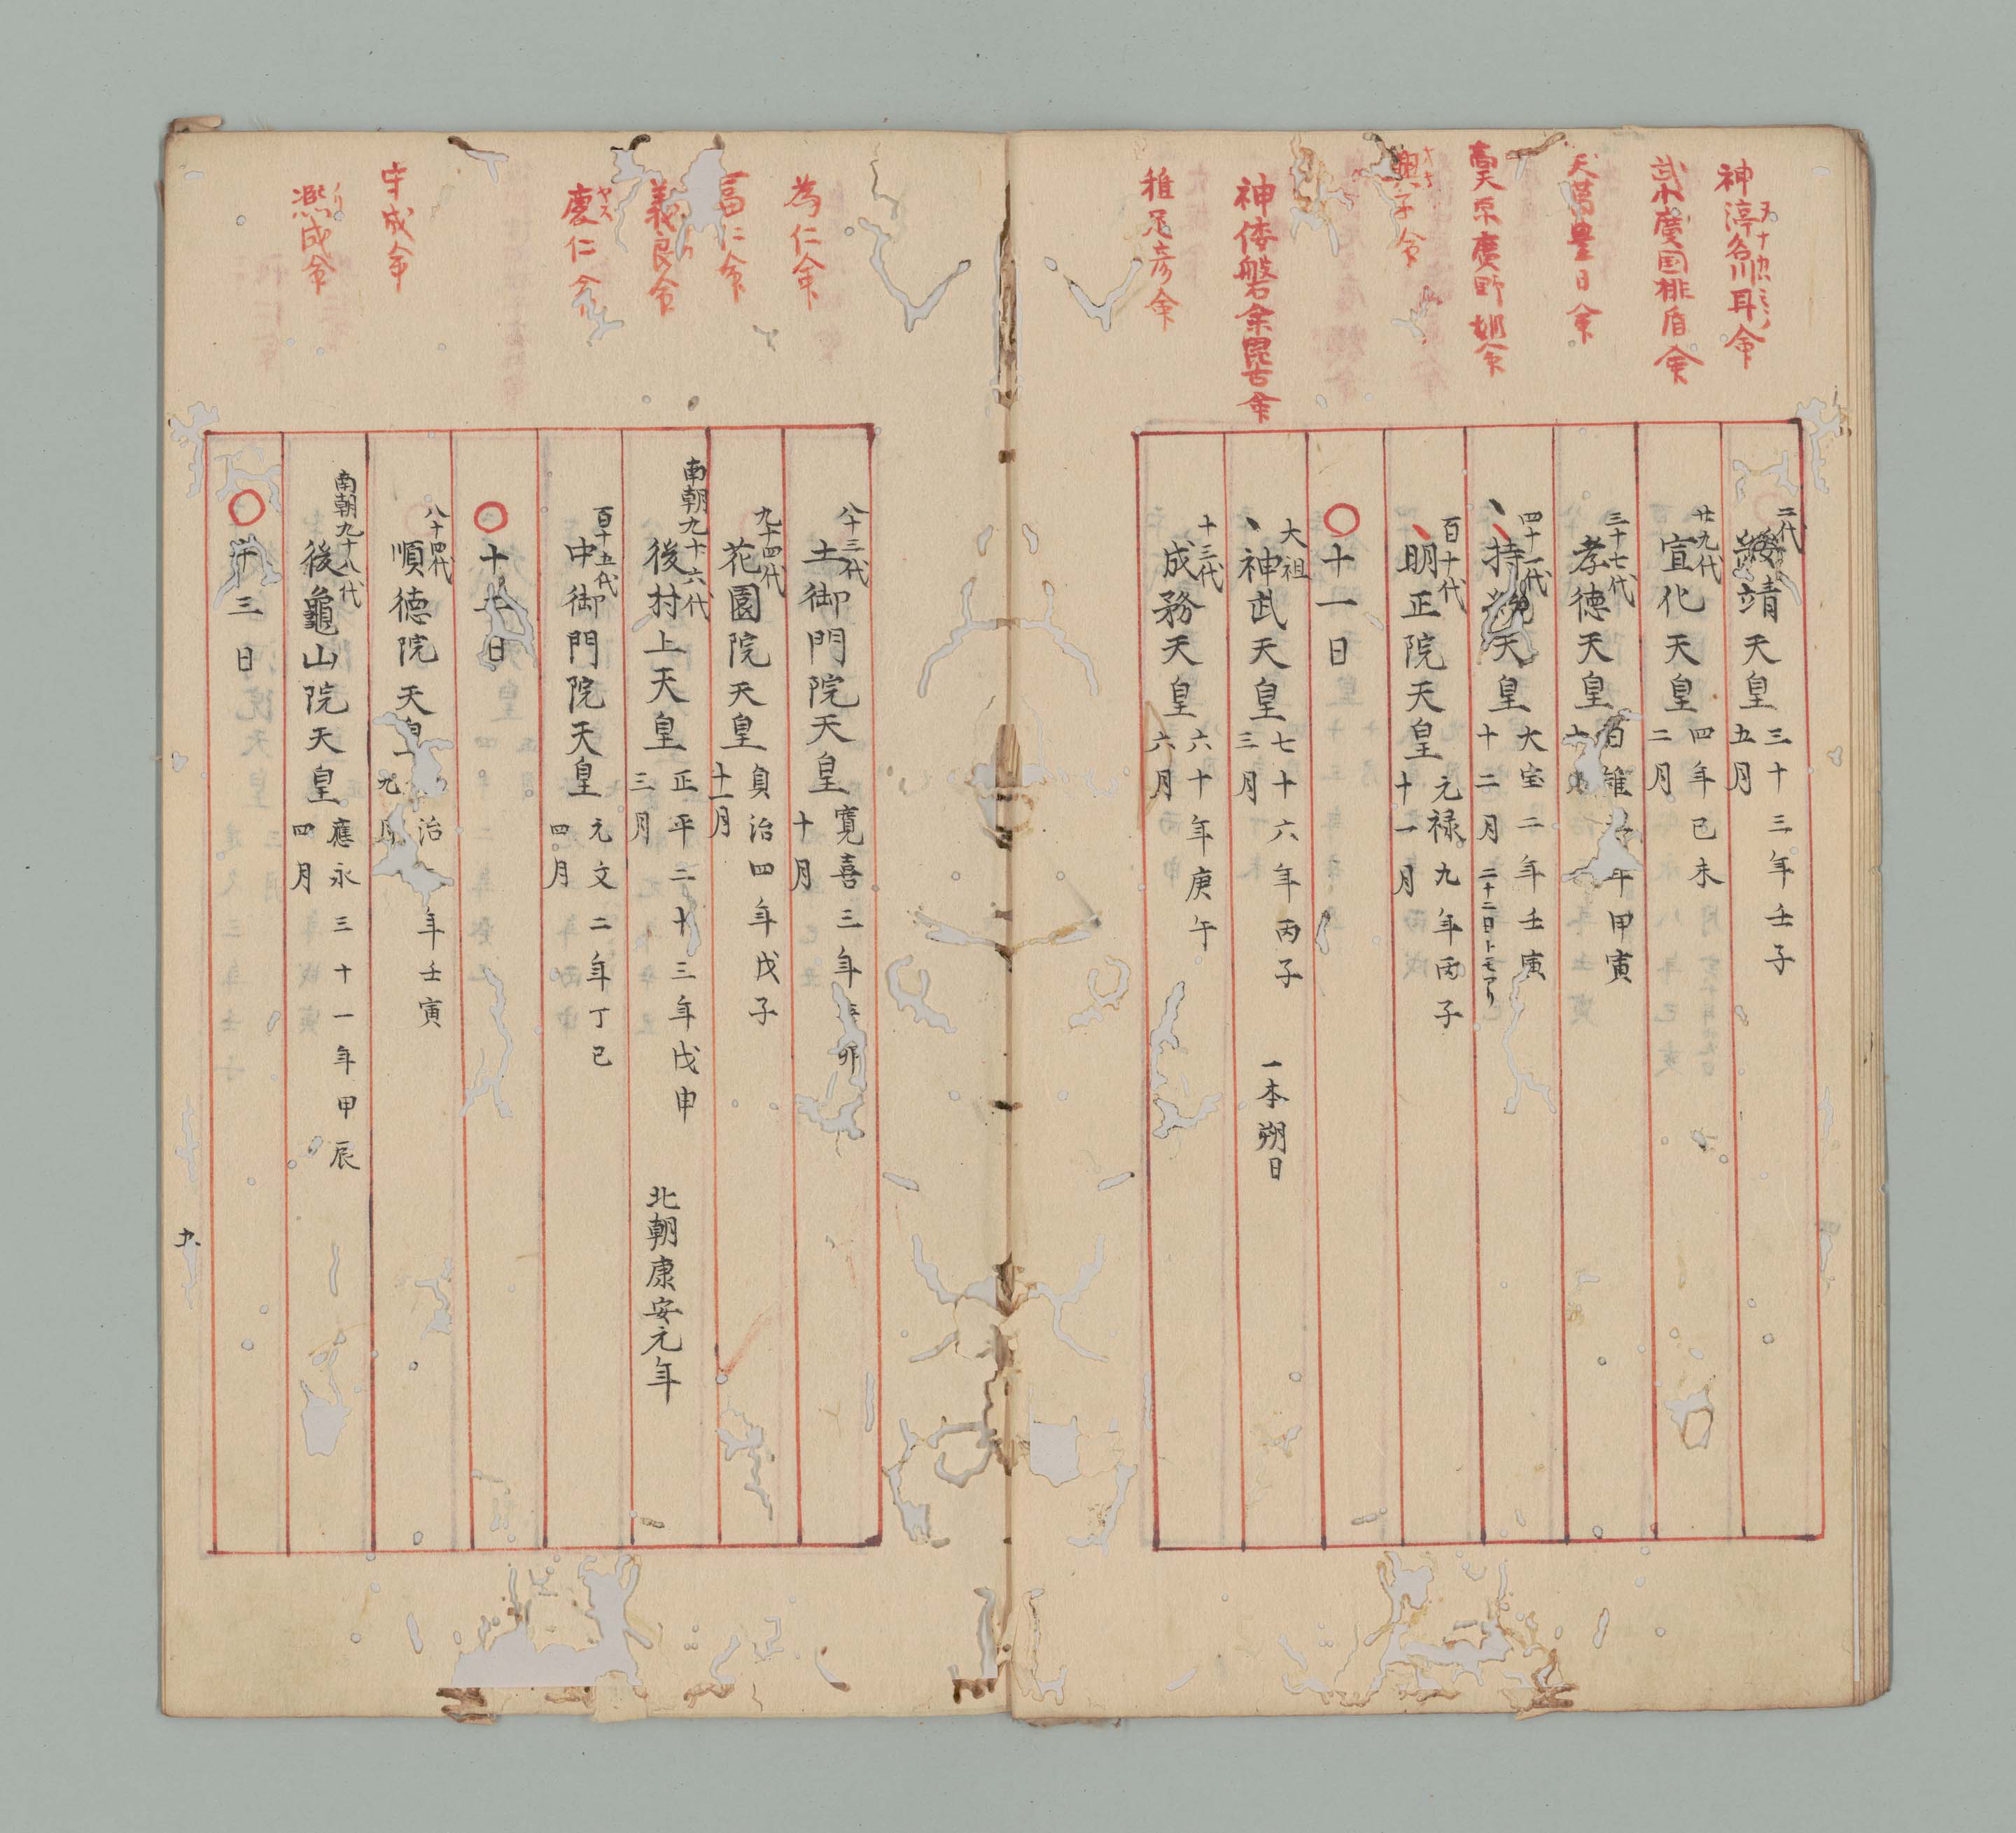 神渟名川耳命
二代
綏靖天皇 三十三年壬子
五月
武小廣国排盾命
廿九代
宣化天皇 四年己未
二月
天萬豊日命
三十七代
孝徳天皇 白雉 年甲寅
四十一代
持 天皇 大宝二年壬寅
十二月 二十二日トモアリ
興子命
百十代
明正院天皇 元禄九年丙子
十一月
○十一日
神倭磐余毘古命
大祖
神武天皇 七十六年丙子 一本朔日
三月
稚足彦命
十三代
成務天皇 六十年庚午
六月
為仁命
八十三代
土御門院天皇 寛喜三年 卯
十月
富仁命
九十四代
花園院天皇 貞治四年戊子
十一月
義良命
南朝九十六代
後村上天皇 正平二十三年戊申 北朝康安元年
三月
慶仁命
ヤス
百十五代
中御門院天皇 元文二年丁巳
四月
○十 日
守成命
八十四代
順徳院天皇 治 年壬寅
九月
凞成命
ノリ
南朝九十八代
後龜山院天皇 應永三十一年甲辰
四月
○十三日
九